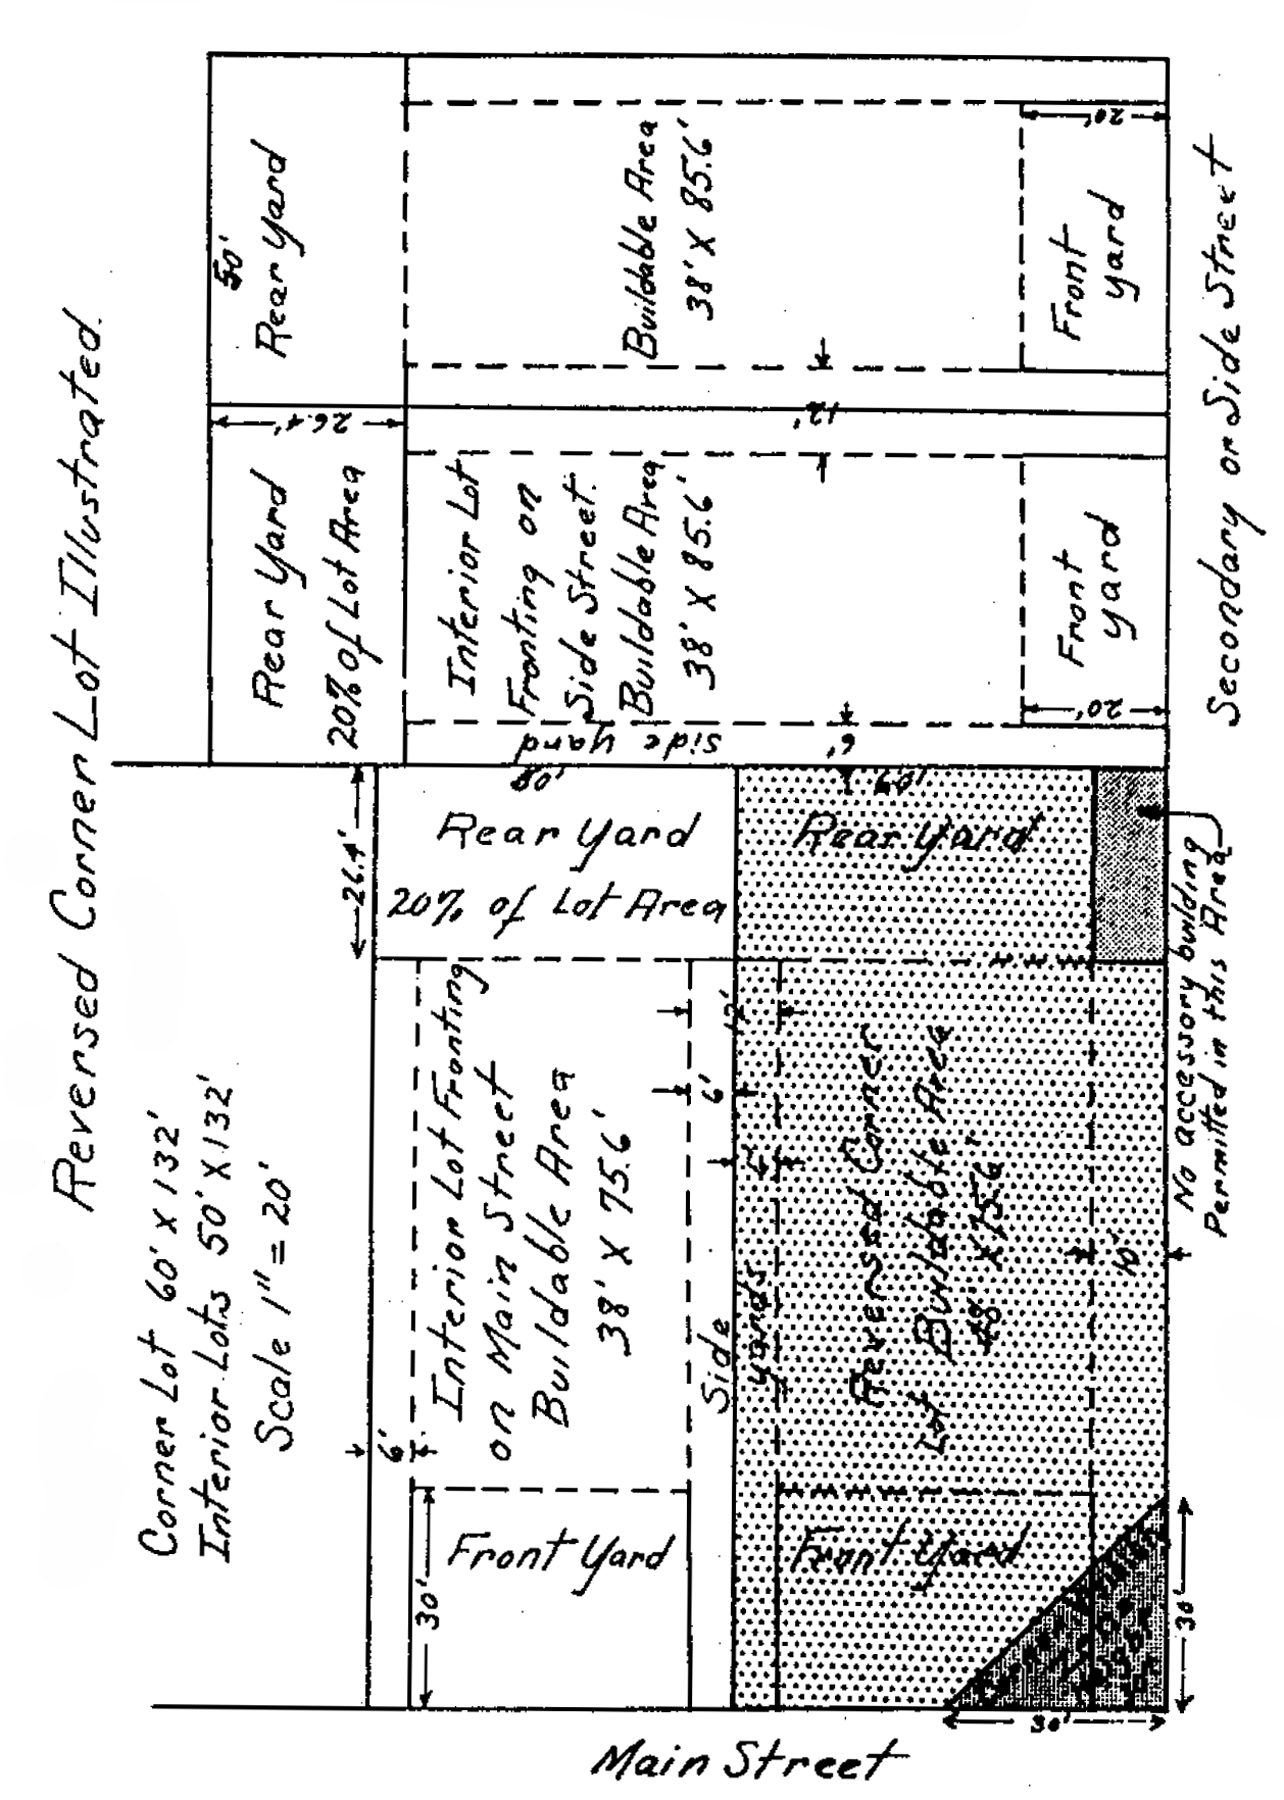 Reversed Corner Lot Illustrated.
Corner Lot 60' X 132'
Interior Lots 50' X 132'
Scale 1" = 20'
50'
Rear Yard
Buildable Area
38' X 85.6'
20'
Front
yard
26.4'
12'
Rear Yard
20% of Lot Area
Interior Lot
Fronting on
Side Street.
Buildable Area
38' X 85.6'
Front
yard
20'
side yard
6'
Secondary or Side Street
26.4'
Rear Yard
20% of Lot Area
Rear Yard
60'
No accessory building
Permitted in this Area
Interior Lot Fronting
on Main Street
Buildable Area
38' X 75.6'
12'
6'
Side
yards
Reversed Corner
Lot Buildable Area
48' X 75.6'
10'
6'
30'
Front Yard
Front Yard
30'
30'
Main Street